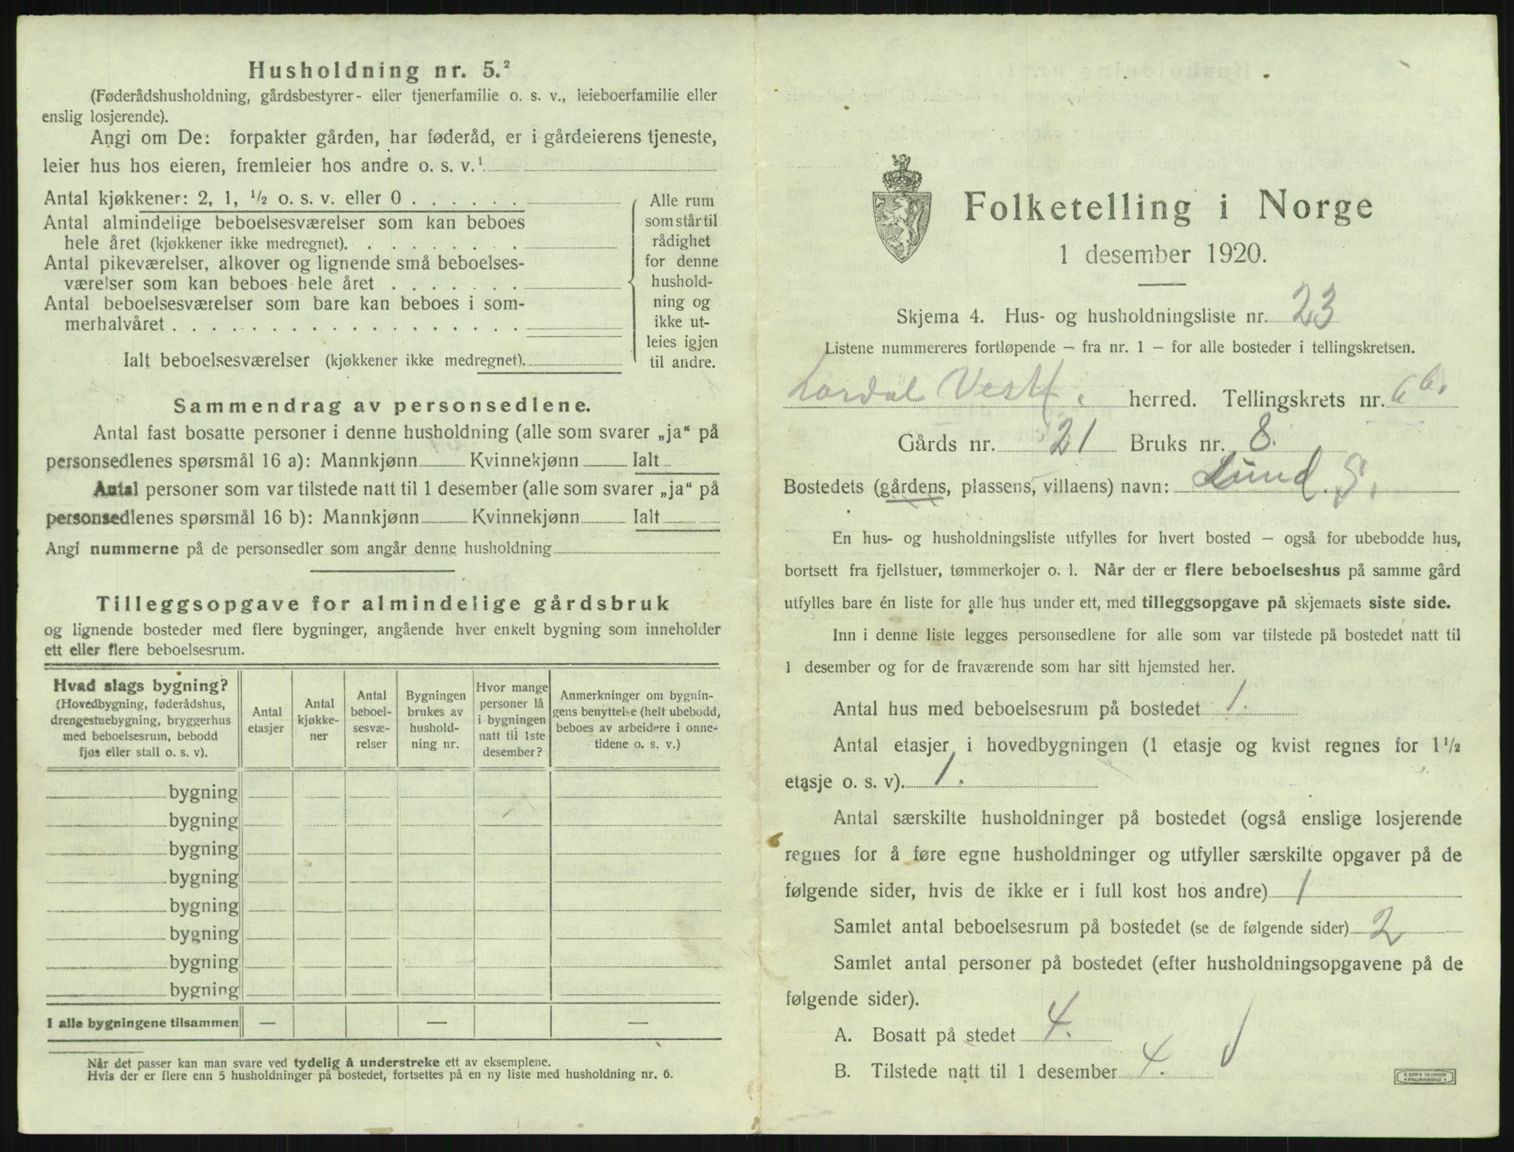 Husholdning nr. 5.²
(Føderådshusholdning, gårdsbestyrer- eller tjenerfamilie o. s. v., leieboerfamilie eller
enslig losjerende).
Angi om De: forpakter gården, har føderåd, er i gårdeierens tjeneste,
leier hus hos eieren, fremleier hos andre o. s. v.¹
Antal kjøkkener: 2, 1, ½ o. s. v. eller 0 . . . . . .
Antal almindelige beboelsesværelser som kan beboes
hele året (kjøkkener ikke medregnet). . . . . . . .
Antal pikeværelser, alkover og lignende små beboelses-
værelser som kan beboes hele året . . . . . . .
Antal beboelsesværelser som bare kan beboes i som-
merhalvåret . . . . . . . . . . . . . . . . . .
Ialt beboelsesværelser (kjøkkener ikke medregnet).
Alle rum
som står til
rådighet
for denne
hushold-
ning og
ikke ut-
leies igjen
til andre.
Sammendrag av personsedlene.
Antal fast bosatte personer i denne husholdning (alle som svarer „ja“ på
personsedlenes spørsmål 16 a): Mannkjønn Kvinnekjønn Ialt
Antal personer som var tilstede natt til 1 desember (alle som svarer „ja“ på
personsedlenes spørsmål 16 b): Mannkjønn Kvinnekjønn Ialt
Angi nummerne på de personsedler som angår denne husholdning
Tilleggsopgave for almindelige gårdsbruk
og lignende bosteder med flere bygninger, angående hver enkelt bygning som inneholder
ett eller flere beboelsesrum.
Hvad slags bygning?
(Hovedbygning, føderådshus,
drengestuebygning, bryggerhus
med beboelsesrum, bebodd
fjøs eller stall o. s. v).
Antal
etasjer
Antal
kjøkke-
ner
Antal
beboel-
sesvæ-
relser
Bygningen
brukes av
hushold-
ning nr.
Hvor mange
personer lå
i bygningen
natt til 1ste
desember?
Anmerkninger om bygnin-
gens benyttelse (helt ubebodd,
beboes av arbeidere i onne-
tidene o. s. v.)
bygning
bygning
bygning
bygning
bygning
bygning
bygning
bygning
I alle bygningene tilsammen — — —
Når det passer kan man svare ved tydelig å understreke ett av eksemplene.
Hvis der er flere enn 5 husholdninger på bostedet, fortsettes på en ny liste med husholdning nr. 6.
Folketelling i Norge
1 desember 1920.
Skjema 4. Hus- og husholdningsliste nr. 23
Listene nummereres fortløpende — fra nr. 1 — for alle bosteder i tellingskretsen.
Lardal Vestf. herred. Tellingskrets nr. 6 b.
Gårds nr. 21 Bruks nr. 8.
Bostedets (gårdens, plassens, villaens) navn: Lund. S.
En hus- og husholdningsliste utfylles for hvert bosted — også for ubebodde hus,
bortsett fra fjellstuer, tømmerkojer o. l. Når der er flere beboelseshus på samme gård
utfylles bare én liste for alle hus under ett, med tilleggsopgave på skjemaets siste side.
Inn i denne liste legges personsedlene for alle som var tilstede på bostedet natt til
1 desember og for de fraværende som har sitt hjemsted her.
Antal hus med beboelsesrum på bostedet 1.
Antal etasjer i hovedbygningen (1 etasje og kvist regnes for 1½
etasje o. s. v). 1.
Antal særskilte husholdninger på bostedet (også enslige losjerende
regnes for å føre egne husholdninger og utfyller særskilte opgaver på de
følgende sider, hvis de ikke er i full kost hos andre) 1
Samlet antal beboelsesrum på bostedet (se de følgende sider) 2
Samlet antal personer på bostedet (efter husholdningsopgavene på de
følgende sider).
A. Bosatt på stedet 4.
B. Tilstede natt til 1 desember 4.